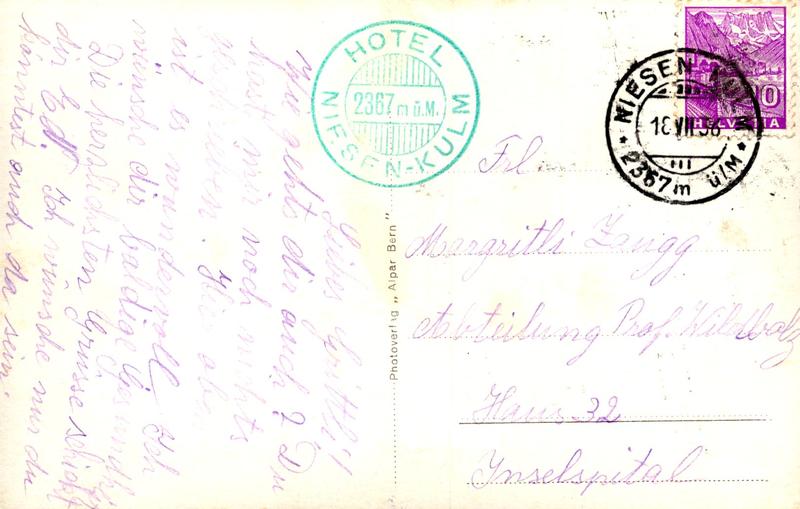 HOTEL
2367 m ü.M.
NIESEN-KULM
NIESEN KULM
18.VII.38
2367m ü/M
10
HELVETIA
Photoverlag „Alpar Bern"
Liebes Gritli!
Wie gehts dir auch? Du
hast mir noch nichts
Hier oben
ist es wundervoll. Ich
wünsche dir baldige
Die herzlichsten Grüsse schickt
dir Edi. Ich wünsche nur du
könntest auch da sein.
Frl.
Margritli Zaugg
Abteilung Prof. Wildbolz
Haus 32
Inselspital